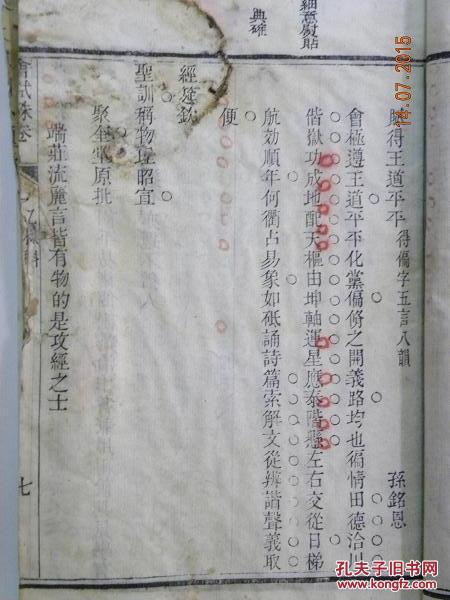 細意熨貼
典確
賦得王道平平 得偏字五言八韻 孫銘恩
會極遵王道平平化黨偏脩之開義路均也徧情田德洽川
偕嶽功成地配天樞由坤軸運星應泰階懸左右交從日梯
航効順年何衢占易象如砥誦詩篇索解文從辨諧聲義取
便
經筵欽
聖訓稱物度昭宣
聚奎堂原批
端莊流麗言皆有物的是攻經之士
會試硃卷
七
14.07.2015
孔夫子旧书网
www.kongfz.com